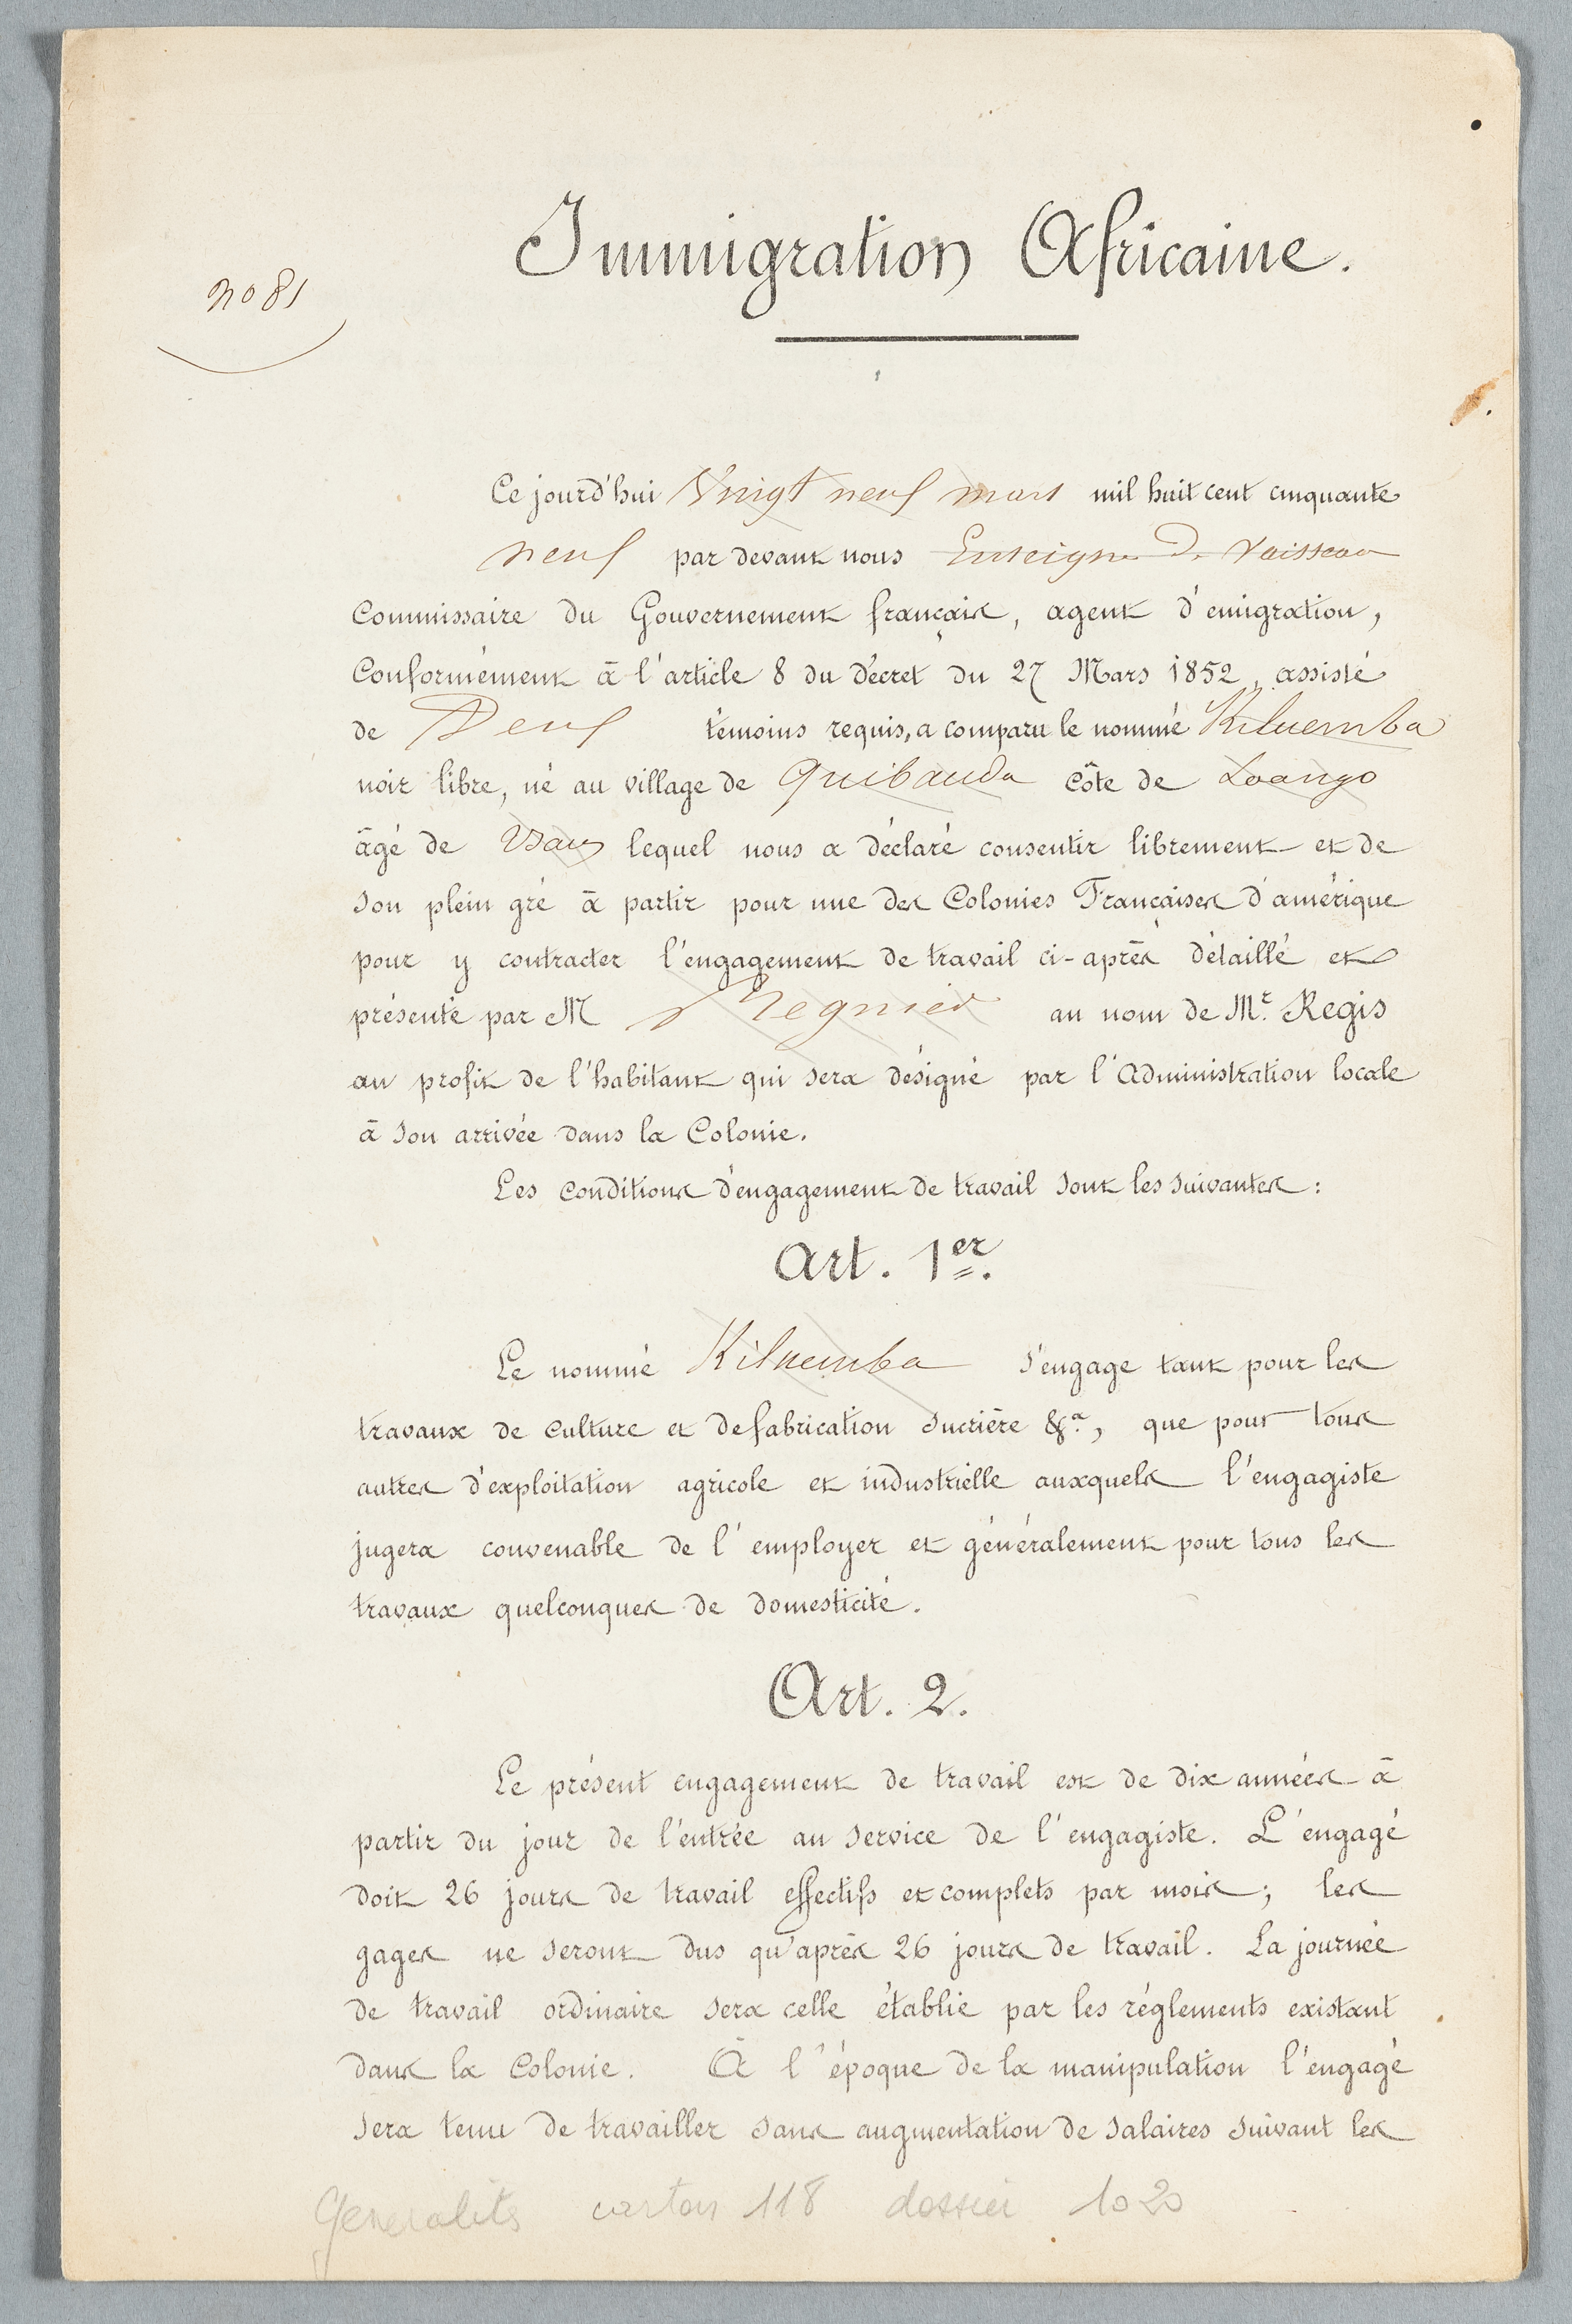 Immigration Africaine.
no 81
Ce jourd'hui Vingt neuf mars mil huit cent cinquante
neuf par devant nous Enseigne de Vaisseau
Commissaire du Gouvernement français, agent d'émigration,
Conformément à l'article 8 du décret du 27 Mars 1852, assisté
de Deux témoins requis, a comparu le nommé Kiluemba
noir libre, né au village de Quibanda Côte de Loango
âgé de lequel nous a déclaré consentir librement et de
son plein gré à partir pour une des Colonies Françaises d'amérique
pour y contracter l'engagement de travail ci-après détaillé et
présenté par M Regnier au nom de Mr. Regis
au profit de l'habitant qui sera désigné par l'Administration locale
à son arrivée dans la Colonie.
Les conditions d'engagement de travail sont les suivantes :
Art. 1er.
Le nommé Kiluemba s'engage tant pour les
travaux de culture et de fabrication sucrière &a, que pour tous
autres d'exploitation agricole et industrielle auxquels l'engagiste
jugera convenable de l'employer et généralement pour tous les
travaux quelconques de domesticité.
Art. 2.
Le présent engagement de travail est de dix années à
partir du jour de l'entrée au service de l'engagiste. L'engagé
doit 26 jours de travail effectifs et complets par mois ; les
gages ne seront dus qu'après 26 jours de travail. La journée
de travail ordinaire sera celle établie par les réglements existant
dans la Colonie. A l'époque de la manipulation l'engagé
sera tenu de travailler sans augmentation de salaires suivant les
Généralités carton 118 dossier 1020